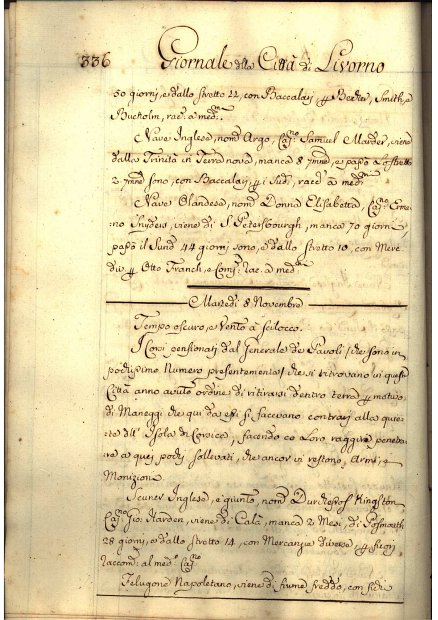 336 Giornale della Città di Livorno
50 giorni, e dallo stretto 22, con Baccalaj p Bexter, Smith, e
Bucholm, rac. a med.mi
Nave Inglese, nom.a Argo, Cap.no Samuel Marder, viene
dalla Trinità in Terra nova, manca 8 7mne, e passò lo stretto
2 7mne sono, con Baccalaj, p i Sud.i racc.i a med.mi
Nave Olandese, nom. Donna Elisabetta, Cap.no
no Snyders, viene di S. Petersbourgh, manca 70 giorni
passò il Sund 44 giorni sono, e dallo stretto 10, con Merc
die p Otto Franch, e Comp.i rac. a med.mi
Martedì 8 Novembre
Tempo oscuro, e Vento a scilocco.
I Corsi pensionati dal Generale de Paoli / che sono in
podissimo Numero presentemente / che si ritrovano in questa
Città anno avuto ordine di ritirarsi dentro terra p motivo
di Maneggi che qui da essi si facevano contrarj alla quie-
te dell' Isola di Corsica, facendo co Loro raggiri penetra-
re a quej pochi sollevati, che ancor vi restono, Armi, e
Monizioni
Scuner Inglese, e quinto, nom. Kingston
Cap.no Gio: Harden, viene di Cala, manca 2 Mesi, di Posmouth
28 giorni, e dallo stretto 14, con Mercanzie diverse, p fuori
raccom. al med.o Cap.no
Felugone Napoletano, viene di fiume freddo, con fichi